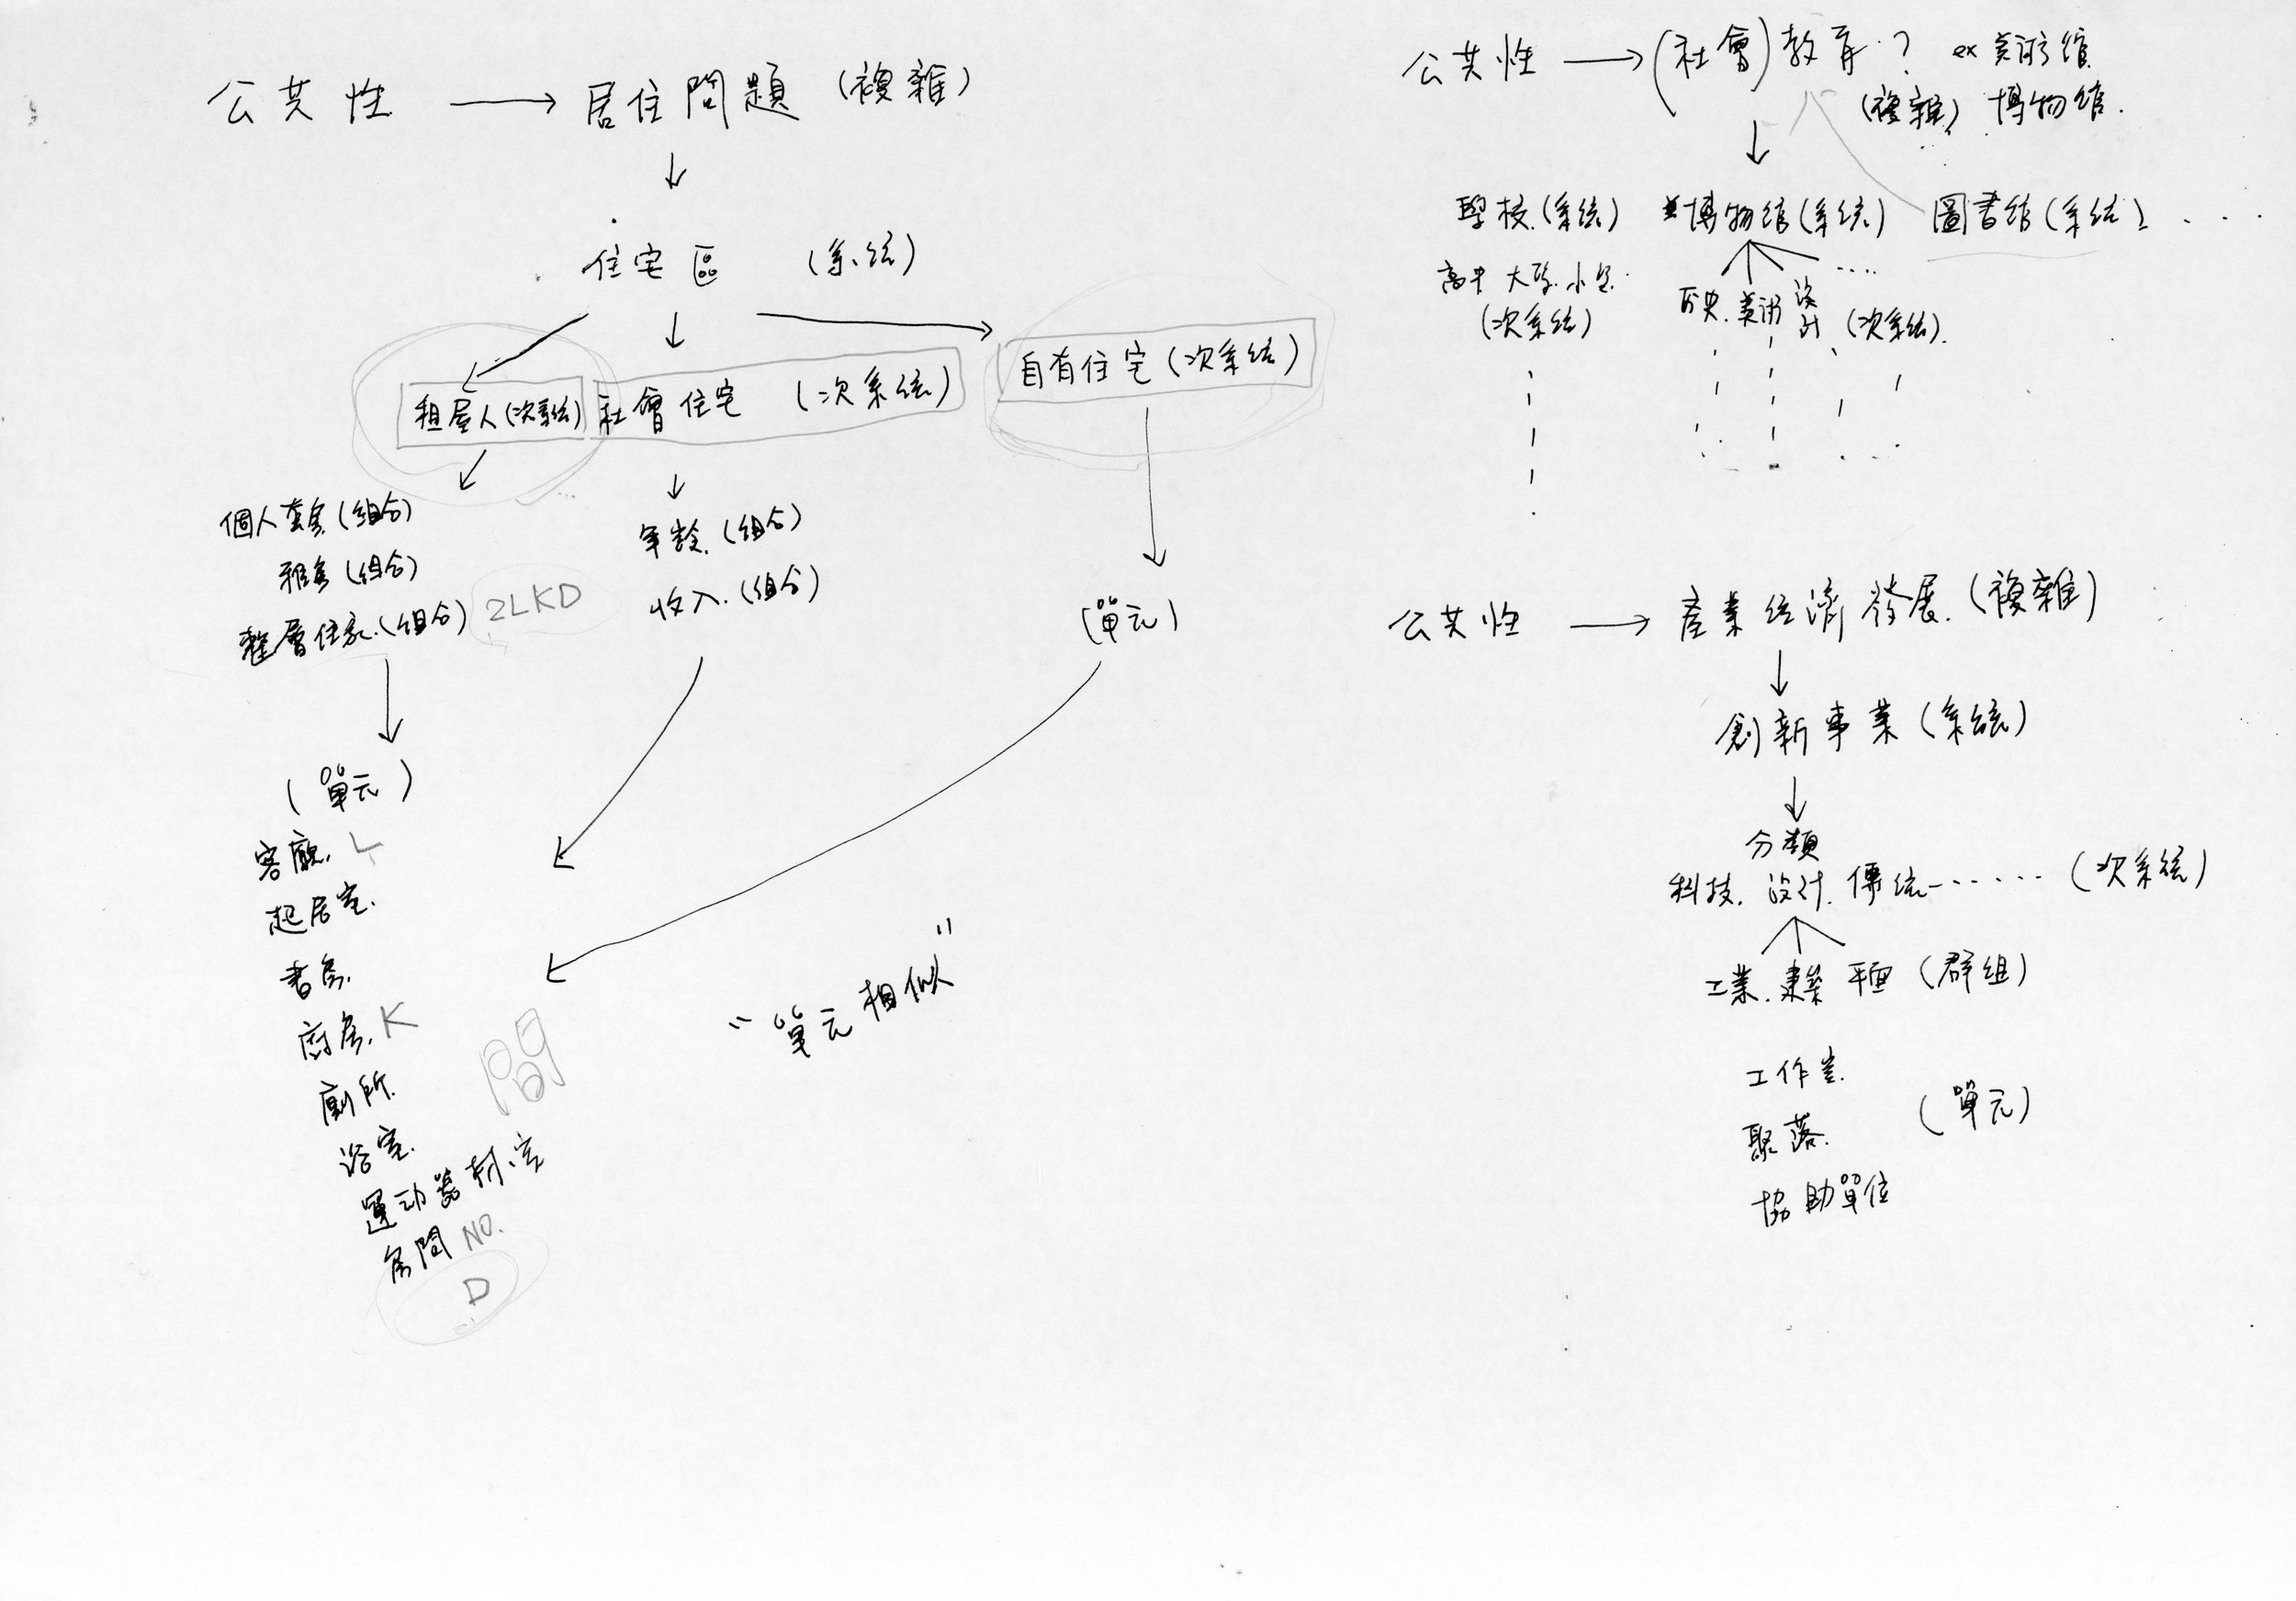 公共性 → 居住問題 (複雜)
↓
住宅區 (系統)
租屋人(次系統) 社會住宅 (次系統) 自有住宅(次系統)
個人套房(組合)
雅房(組合)
整層住家.(組合) 2LKD
年齡.(組合)
收入.(組合)
(單元)
(單元)
客廳. L
起居室.
書房.
廚房. K
廁所.
浴室.
運动器材室
房間 NO.
D
間
"單元相似"
公共性 → (社會)教育? ex 美術館
(複雜) 博物館.
↓
學校.(系統) 博物館(系統) 圖書館(系統) ....
高中 大學. 小學.
(次系統)
历史. 美術 設計 .... (次系統).
公共性 → 產業經濟發展.(複雜)
↓
創新事業(系統)
↓
分類
科技. 設計. 傳統...... (次系統)
工業. 建築 平面 (群組)
工作室.
聚落. (單元)
協助單位